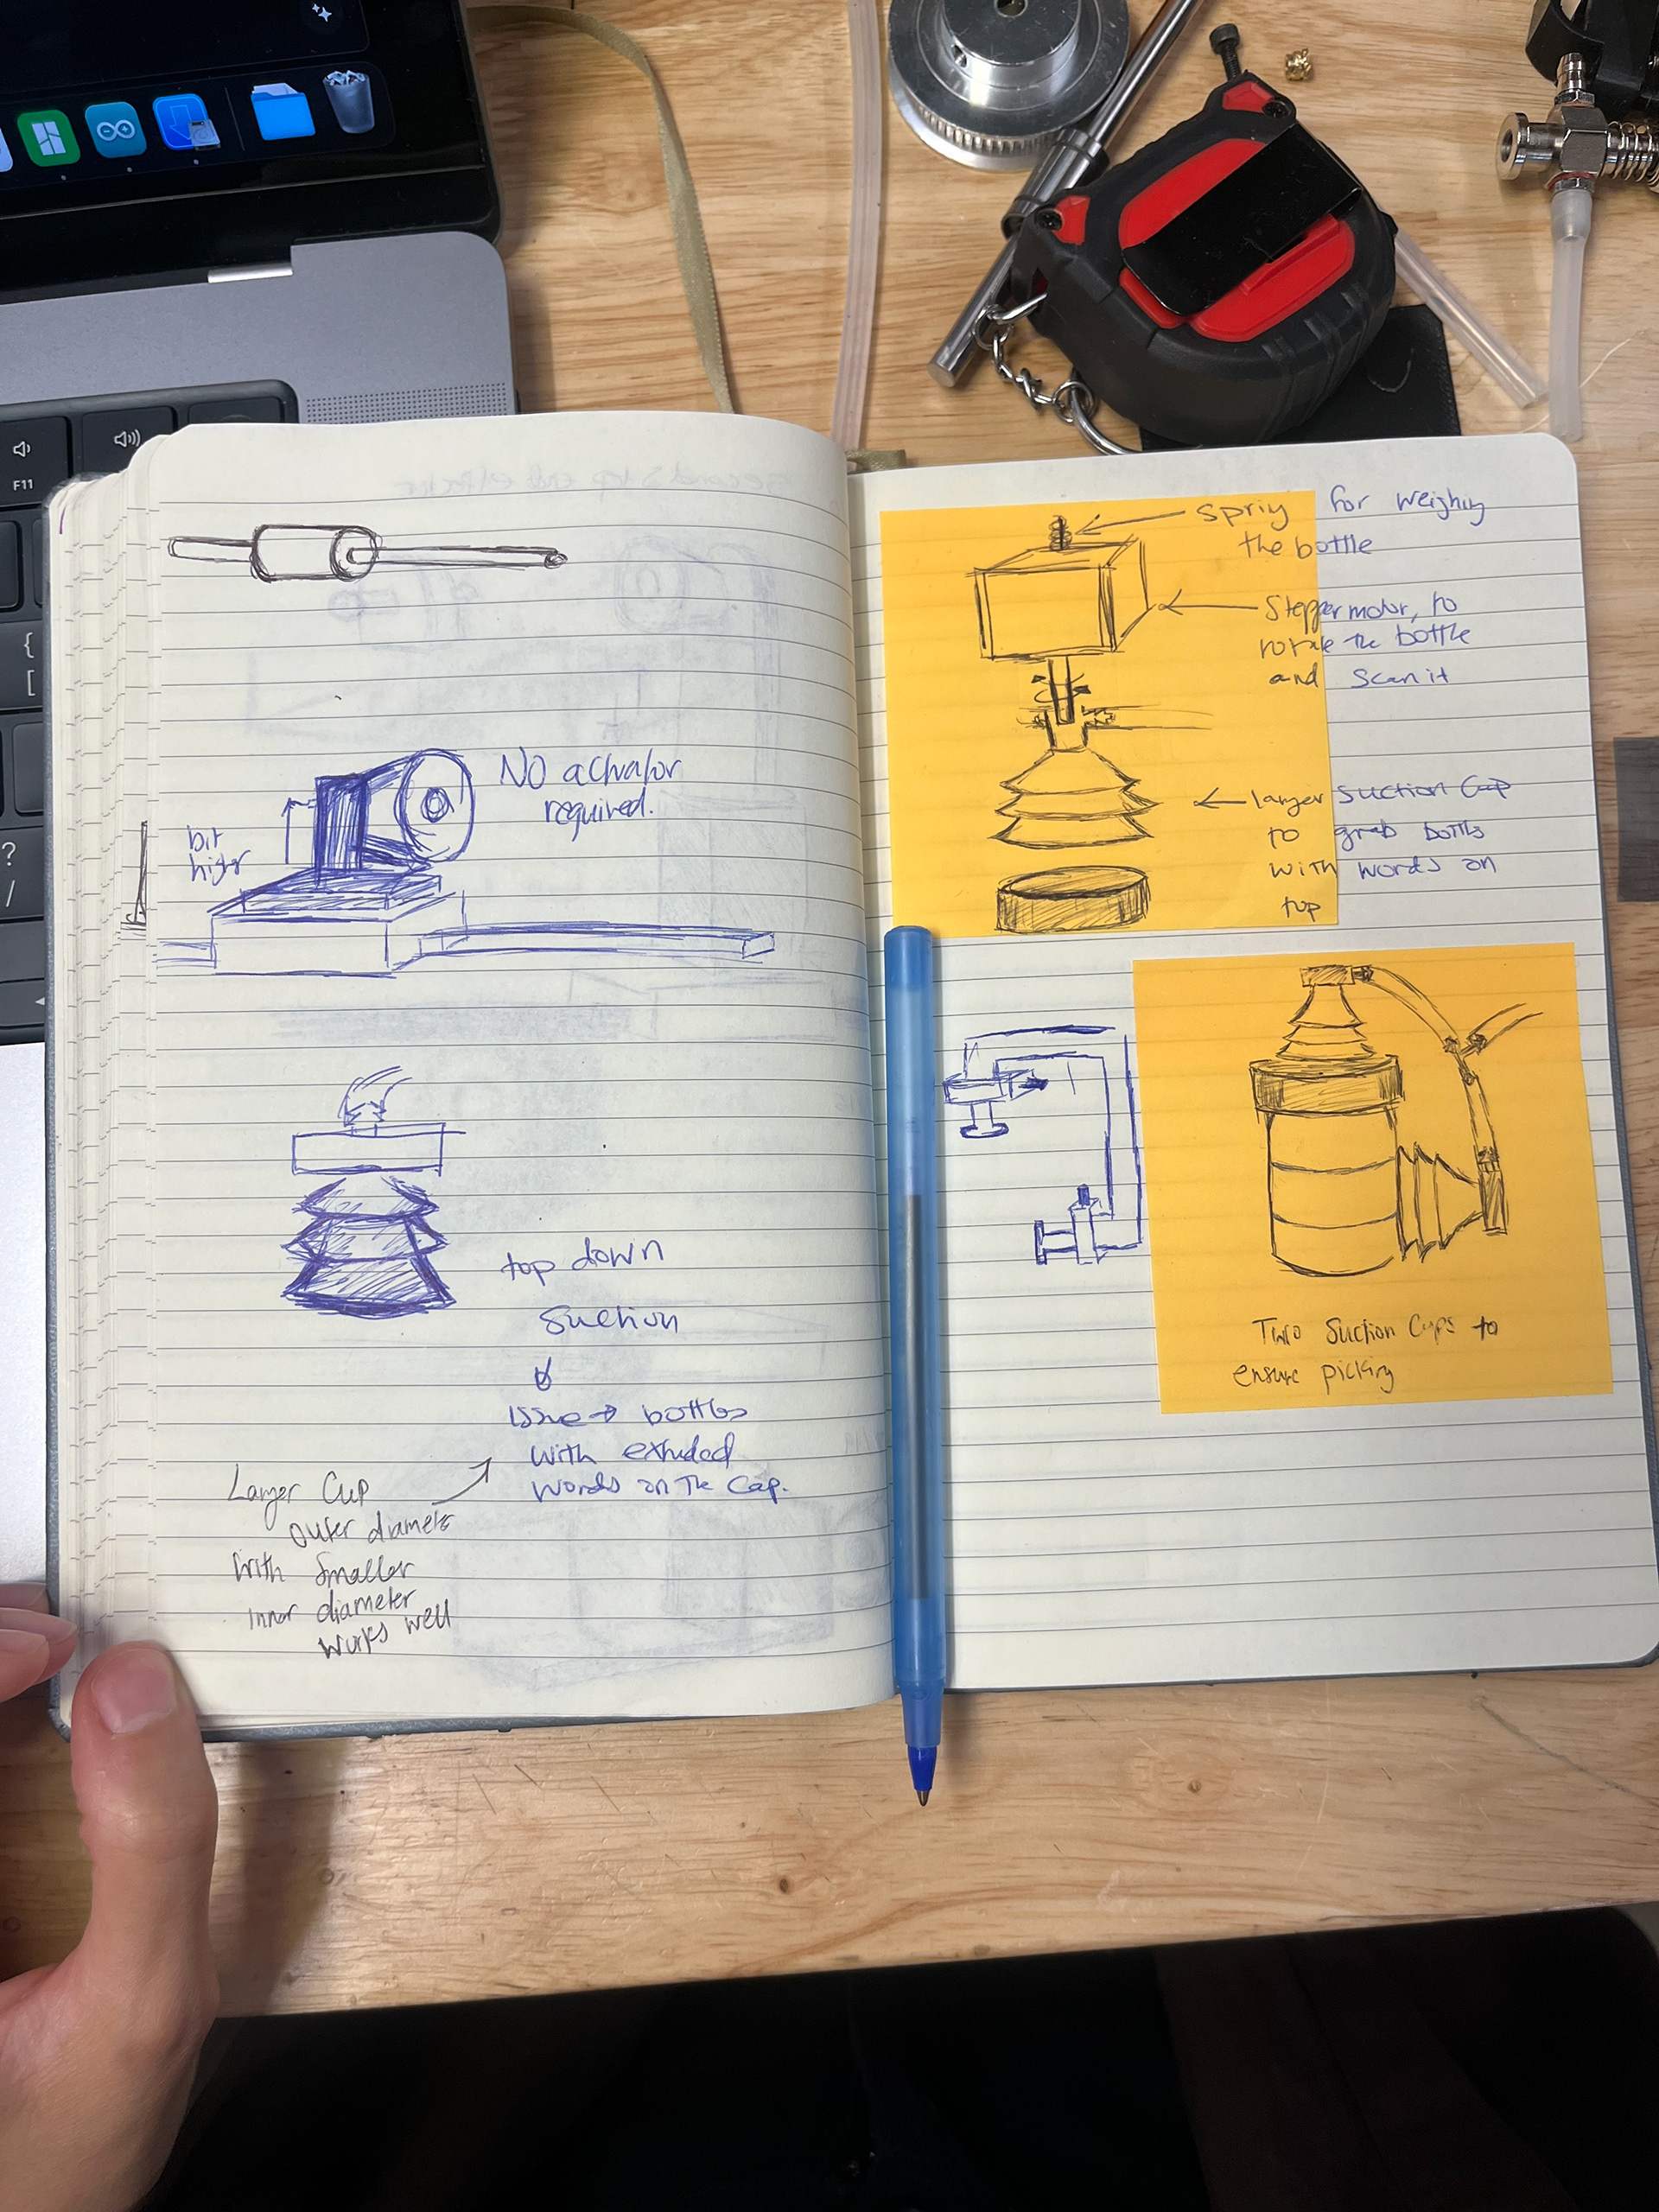 F11
{
[
?
/
NO actuator
required.
bit
higher
top down
Suction
issue → bottles
with extruded
words on the cap.
Larger Cup
outer diameter
with smaller
inner diameter
works well
spring for weighing
the bottle
Stepper motor, to
rotate the bottle
and scan it
larger suction cup
to grab bottles
with words on
top
Two Suction Cups to
ensure picking